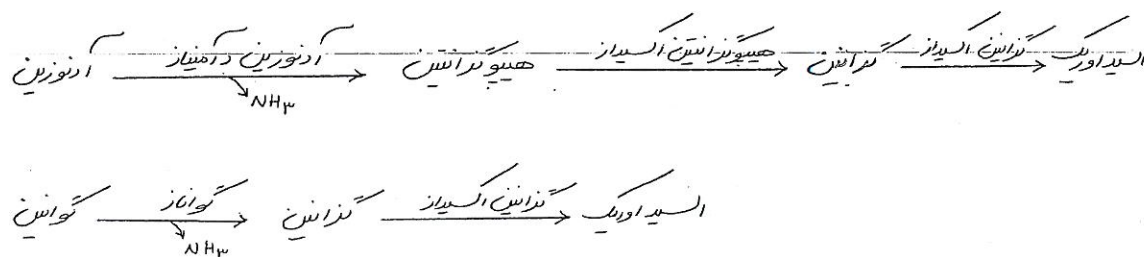 آدنوزین آدنوزین دآمیناز هیپوگزانتین هیپوگزانتین اکسیداز گزانتین گزانتین اکسیداز اسید اوریک
NH۳
گوانین گواناز گزانتین گزانتین اکسیداز اسید اوریک
NH۳